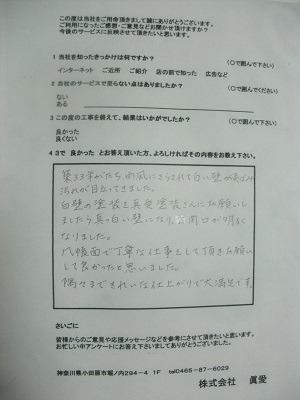 この度は当社をご用命頂きまして誠にありがとうございます。
ご利用になったご感想・ご意見などお聞かせ頂けますか?
今後のサービスに反映させて頂きたいと思います。
1 当社を知ったきっかけは何ですか? (〇で囲んで下さい)
インターネット ご近所 ご紹介 店の前で知った 広告など
2 当社のサービスで至らない点はありましたか? (〇で囲んでください)
ない
ある
3 この度の工事を終えて、結果はいかがでしたか? (〇で囲んで下さい)
良かった
良くない
4 3で 良かった とお答え頂いた方、よろしければその内容をお教え下さい。
築33年がたち、雨風にさらされて白い壁が
汚れが目立ってきました。
白壁の塗装を真愛塗装さんにお願いし
ましたら真っ白い壁になり、間口が明るく
なりました。
几帳面で丁寧な仕事をして頂きお願い
して良かったと思いました。
隅々まできれいな仕上がりで大満足です。
さいごに
皆様からのご意見や応援メッセージなどを参考にさせて頂きたいと思います。
お忙しい中アンケートにお答え下さいましてありがとうございました。
神奈川県小田原市堀ノ内294-4 1F tel0465-87-6029
株式会社 眞愛